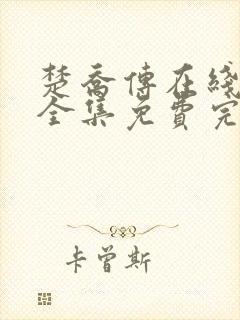 楚喬傳在綫
全集免費完
卡曾斯